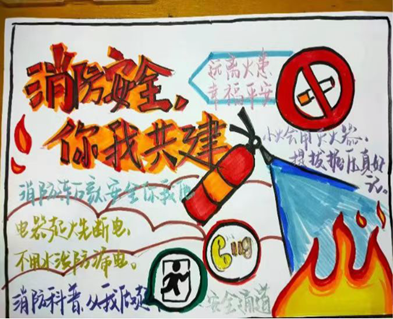 消防安全,
你我共建
远离火患
幸福平安
小火会用灭火器、
提拔握压真好
记。
消防 安全你我
电器起火先断电,
不用水浇防漏电。
119
消防科普,从我做起 安全通道